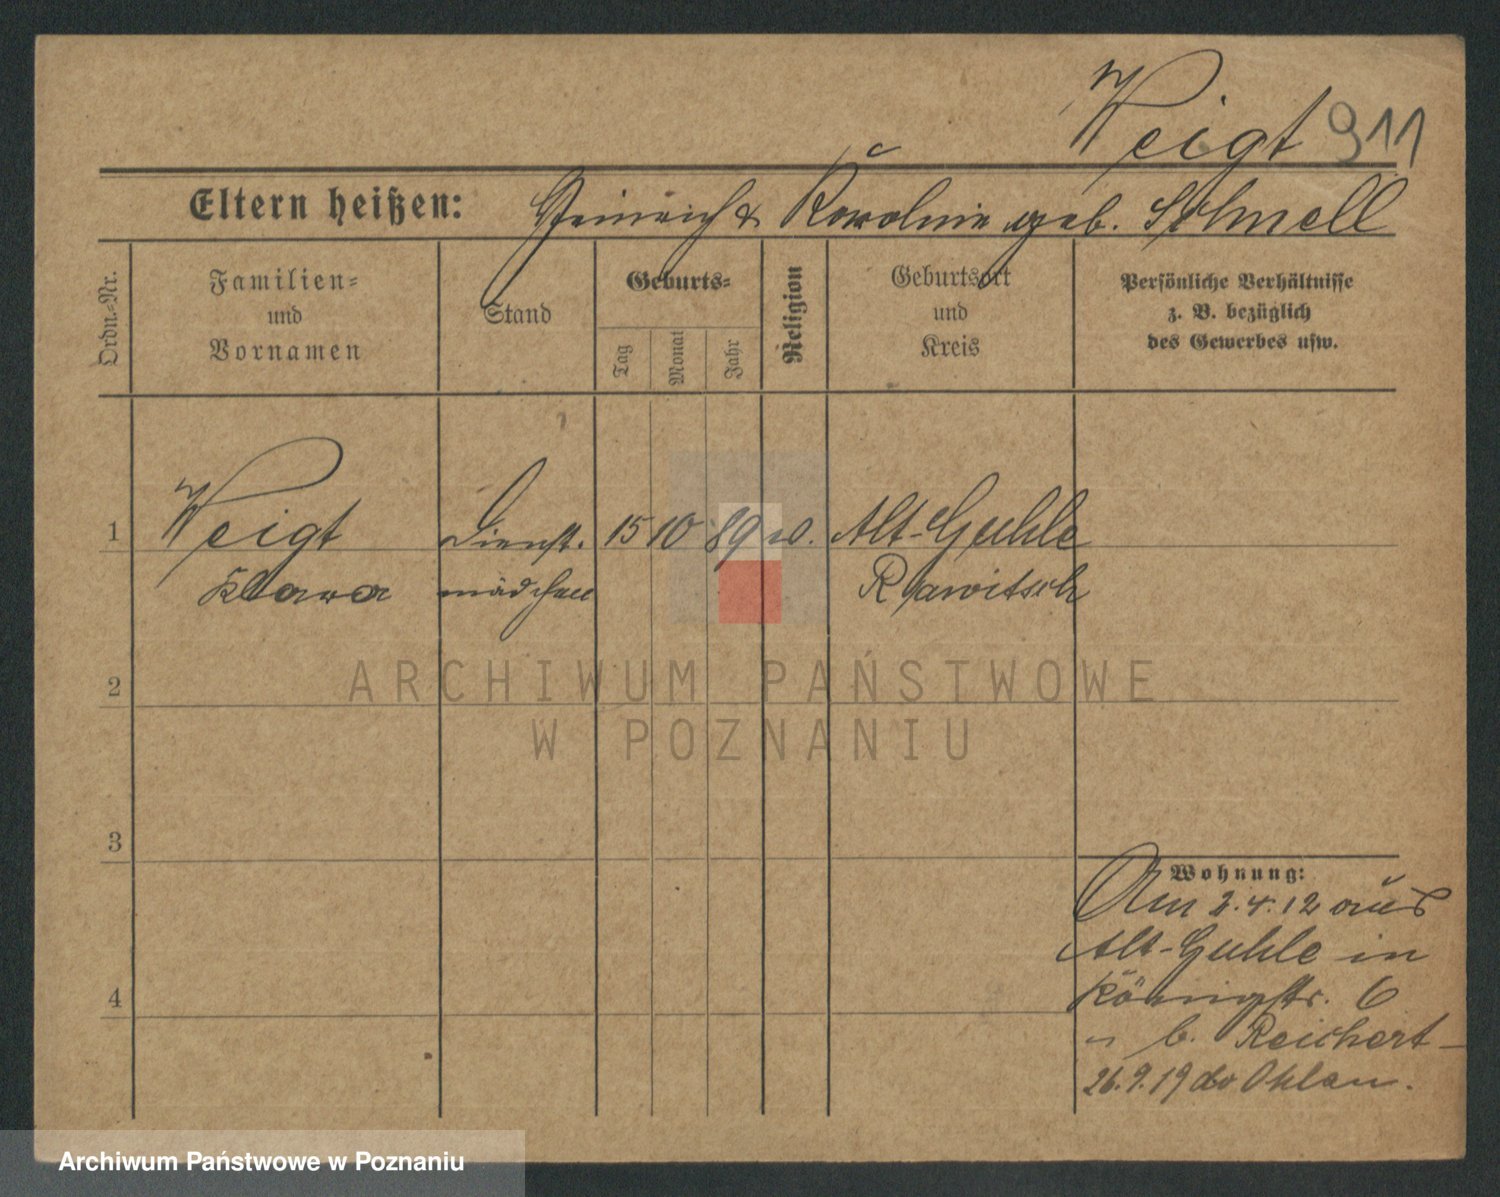 Weigt 911
Eltern heißen: Heinrich & Karoline geb. Schnell
Ordn.-Nr.
Familien-
und
Vornamen
Stand
Geburts-
Tag
Monat
Jahr
Religion
Geburtsort
und
Kreis
Persönliche Verhältnisse
z. B. bezüglich
des Gewerbes usw.
1 Weigt Dienst- 15 10 89 Alt-Guhle
Klara mädchen Rawitsch
2
3
4
Wohnung:
Am 2.4.12 aus
Alt-Guhle in
Königstr. 6
b. Reichert
26.9.19 Ohlau.
ARCHIWUM PAŃSTWOWE
W POZNANIU
Archiwum Państwowe w Poznaniu